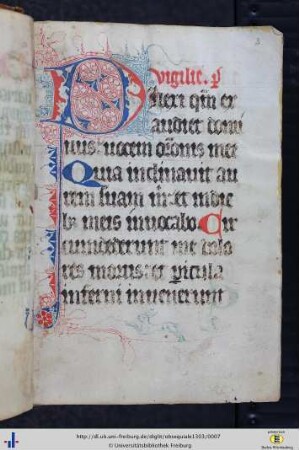 vigilie. p̄
Dilexi qm̄ ex
audiet domi
nus: vocem oōnis mee
Quia inclinauit au
rem suam m: et in die
bȝ meis inuocabo Cir
cumdederunt me dolo
res mortis: et pericula
inferni inuenerunt
http://dl.ub.uni-freiburg.de/diglit/obsequiale1303/0007
© Universitätsbibliothek Freiburg